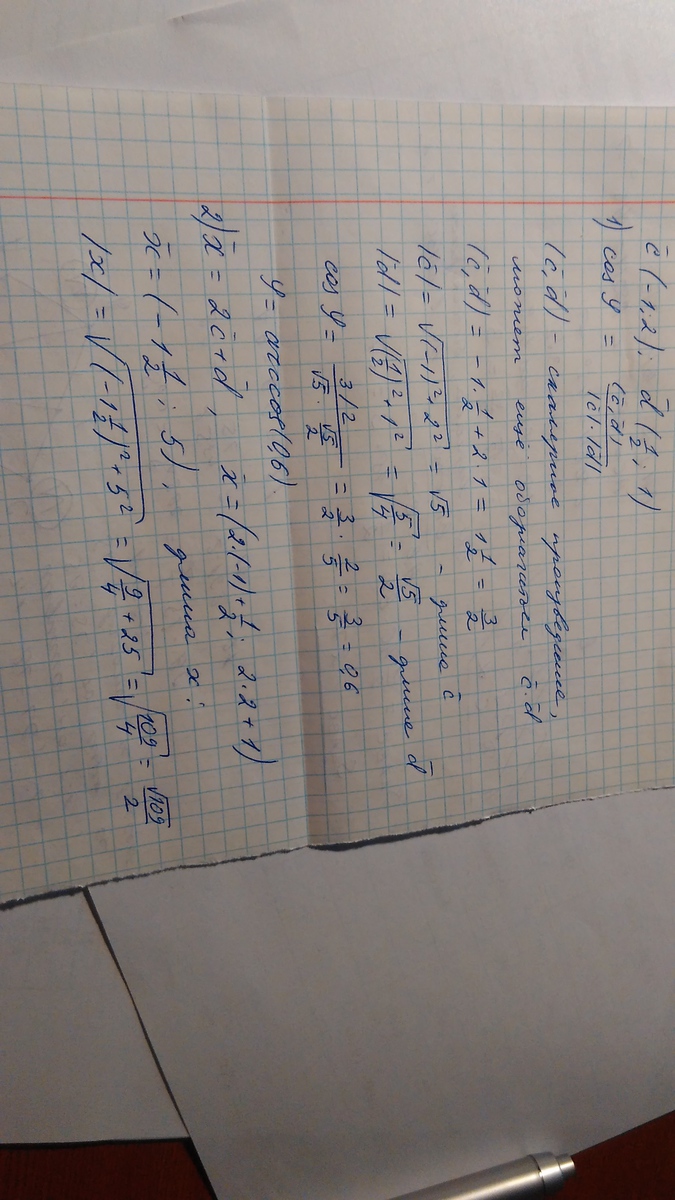 c̄ (-1, 2); d̄ (1/2; 1)
1) cos φ = (c̄, d̄) / |c̄|·|d̄|
(c̄, d̄) - скалярное произведение,
может ещё обозначаться c̄·d̄
(c̄, d̄) = -1·1/2 + 2·1 = 1 1/2 = 3/2
|c̄| = √((-1)² + 2²) = √5 - длина c̄
|d̄| = √((1/2)² + 1²) = √(5/4) = √5/2 - длина d̄
cos φ = (3/2) / (√5 · √5/2) = 3/2 · 2/5 = 3/5 = 0,6
φ = arccos(0,6).
2) x̄ = 2c̄ + d̄, x̄ = (2·(-1) + 1/2; 2·2 + 1)
x̄ = (-1 1/2; 5), длина x:
|x| = √((-1 1/2)² + 5²) = √(9/4 + 25) = √(109/4) = √109/2